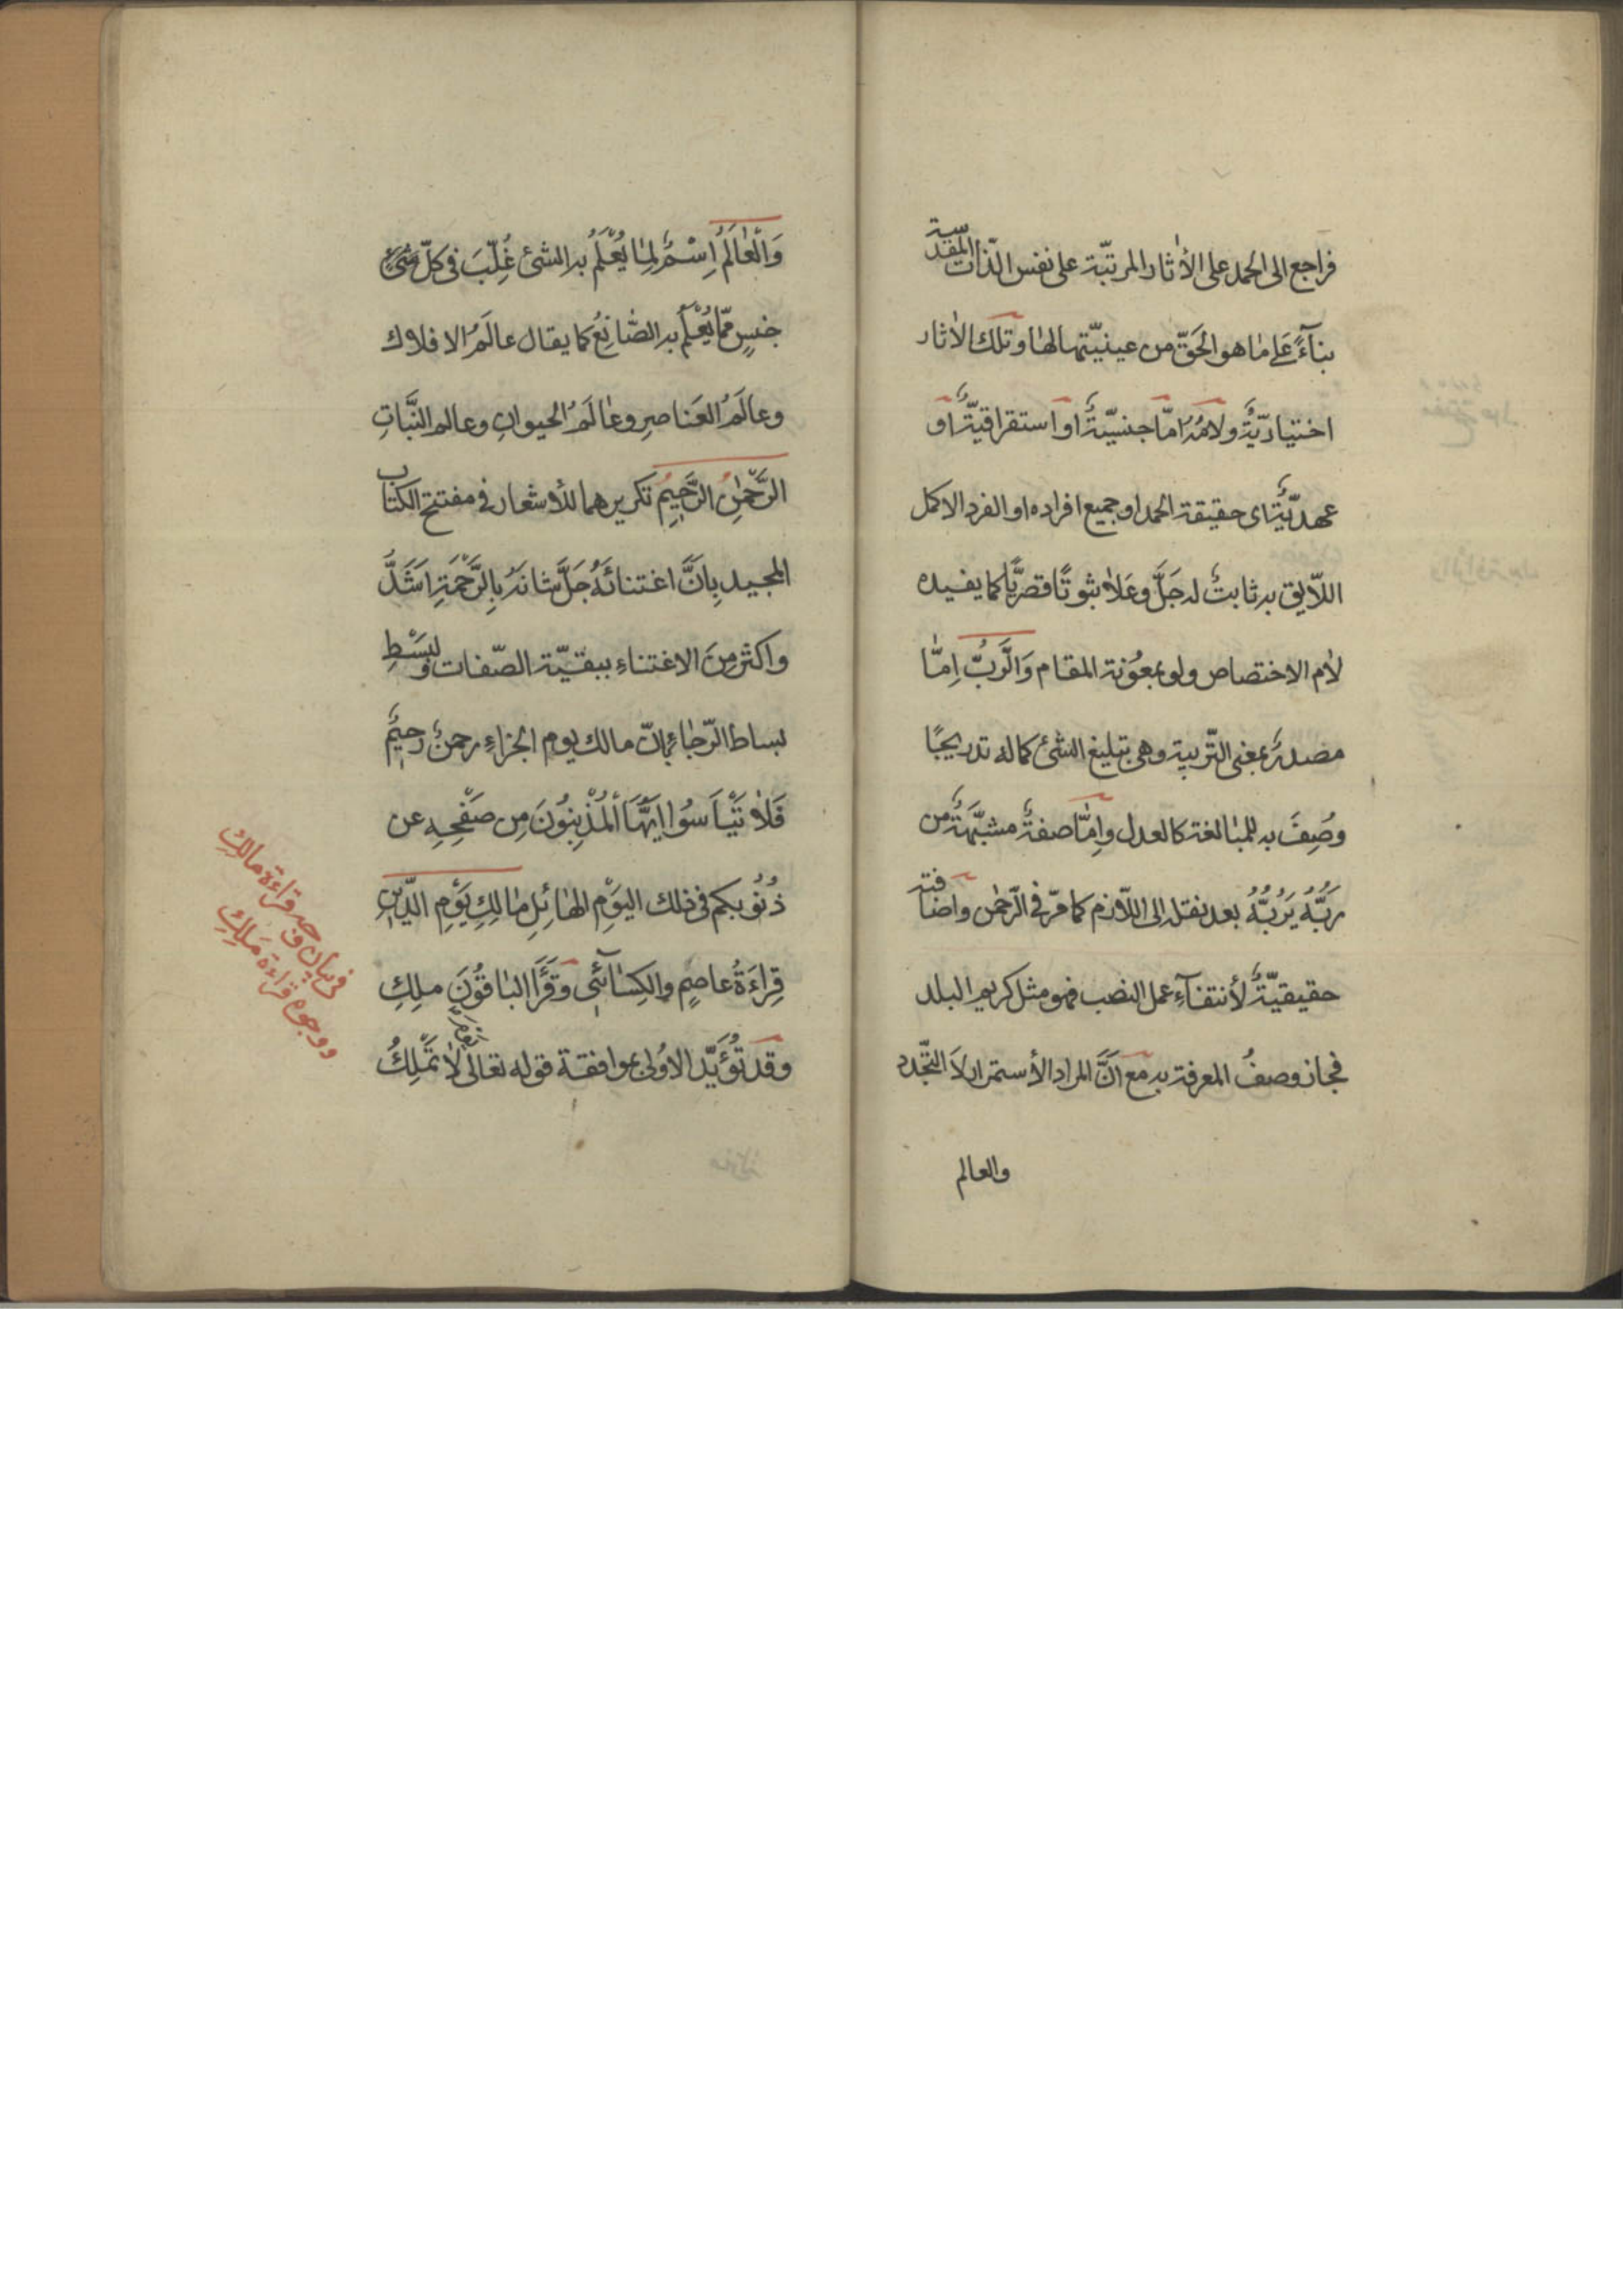 فراجع الى الحمد على الأثار المرتبّة على نفس الذّات المقدّسة
بنآءً عَلى ما هو الحَقّ من عينيّتها لها وتلك الأثار
اختياريّةٌ ولامُهُ امّا جنسيّةٌ او استغراقيّةٌ او
عهديّةٌ اى حقيقة الحمد او جميع افراده او الفرد الاكمل
اللّايق به ثابتٌ له جَلَّ وعَلا ثبوتًا قصريًّا كما يفيده
لام الاختصاص ولو بمعُونة المقام وَالرَّبُّ اِمّا
مصدرٌ بمعنى التّربية وهى تبليغ الشئ كماله تدريجًا
وصُفَ به للمبالغة كالعدل وامّا صفةٌ مشبّهةٌ من
ربّهُ يَرُبُّهُ بعد نقله الى اللّازم كما مرّ فى الرّحمن واضافته
حقيقيّةٌ لأنتفآءِ عمل النصب فهو مثل كريم البلد
فجاز وصفُ المعرفة به مع اَنَّ المراد الأستمرار لا التّجدّد
والعالم
وَالْعالَمُ اِسْمٌ لِما يُعْلَمُ به الشئ غُلِّبَ فى كلّ شئٍ
جنسٍ ممّا يُعْلَمُ به الصّانِعُ كما يقال عالَمُ الافلاك
وعالَمُ العَناصِرِ وعالَمُ الحيوانِ وعالم النَّباتِ
الرَّحْمنِ الرَّحِيمِ تكريرهما للأشعار فى مفتتح الكتاب
المجيد بِانَّ اعتنائَهُ جَلَّ شانَهُ بِالرَّحْمَةِ اَشَدُّ
واكثر مِنَ الاعتناءِ ببقيّة الصّفات وَلبَسْطِ
بساط الرّجاءِ بانّ مالك يوم الجزاءِ رحمنٌ رحِيمٌ
فَلا تَيْاَسوُا ايّهَا الْمُذْنِبُونَ مِن صَفْحِهِ عن
ذُنُوبكم فى ذلك اليَوْمِ الهائِلِ مالِكِ يَوْمِ الدّينِ
قِراءَةُ عاصِمٍ والكِسائىّ وقَرَأَ الباقُونَ ملِكِ
وقد تُؤَيَّد الاوُلى بموافقة قوله تعالى لا تَمْلِكُ
فى بيان وجه قراءة مالك
ووجوه قراءة مَلِكِ